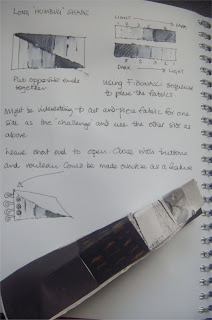 LONG 'HUMBUG' SHAPE
LIGHT
DARK
DARK
LIGHT
Put opposite ends
together
using Fibonacci sequence
to piece the fabrics
Might be interesting to cut and piece fabric for one
side as the 'challenge' and use the other side as
above
Leave short end to open Close with buttons
and rouleau Could be made oversize as a feature